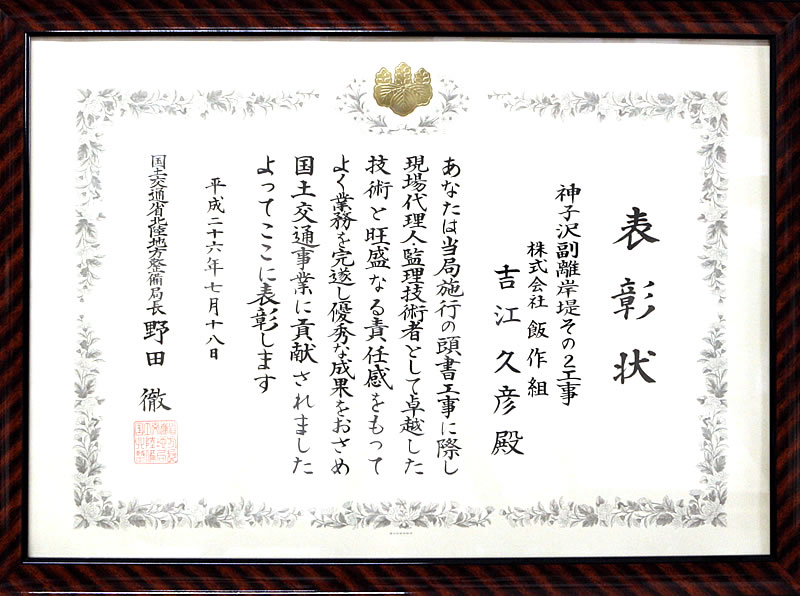 表彰状
神子沢副離岸堤その2工事
株式会社 飯作組
吉江久彦殿
あなたは当局施行の頭書工事に際し
現場代理人・監理技術者として卓越した
技術と旺盛なる責任感をもって
よく業務を完遂し優秀な成果をおさめ
国土交通事業に貢献されました
よってここに表彰します
平成二十六年七月十八日
国土交通省北陸地方整備局長 野田 徹